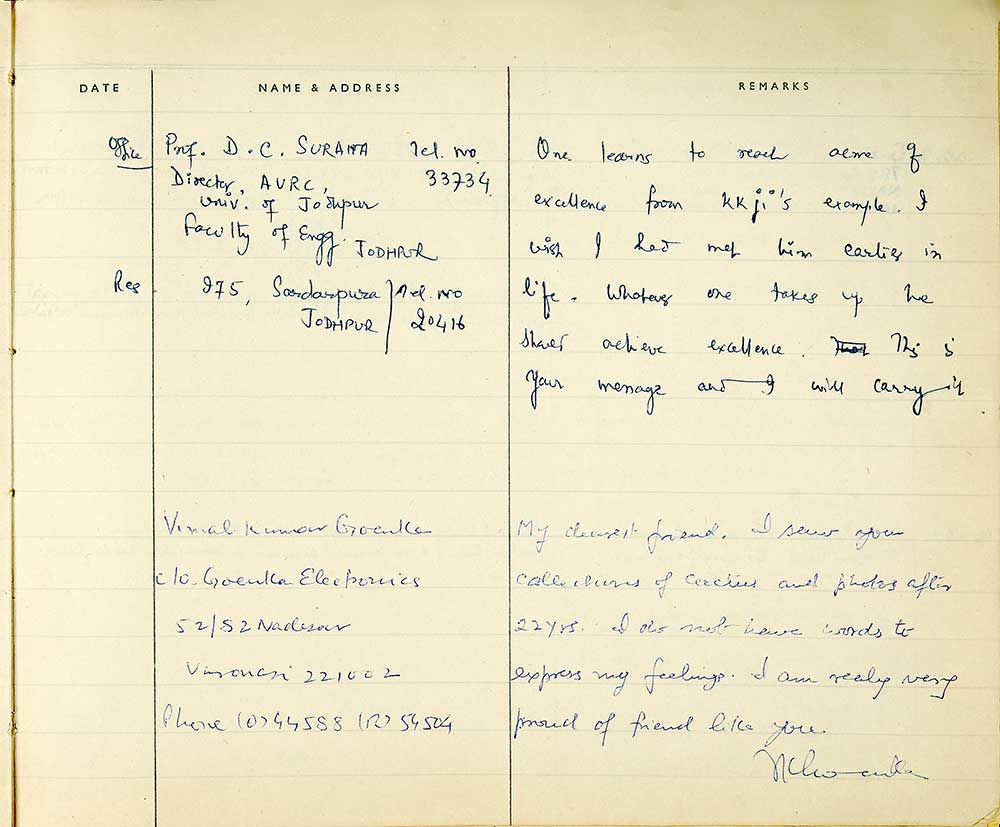 DATE NAME & ADDRESS REMARKS
Office Prof. D.C. SURANA Tel. no.
Director, AVRC, 33734
Univ. of Jodhpur
Faculty of Engg.
JODHPUR
Res 275, Sardarpura Tel. no
JODHPUR 20416
One learns to reach acme of
excellence from KKji's example. I
wish I had met him earlier in
life. Whatever one takes up he
should achieve excellence. This is
your message and I will carry it
Vimal Kumar Goenka
c/o. Goenka Electronics
52/52 Nadesar
Varanasi 221002
Phone (O) 44588 (R) 54504
My dearest friend. I saw your
collections of cactus and photos after
22 yrs. I do not have words to
express my feelings. I am really very
proud of friend like you.